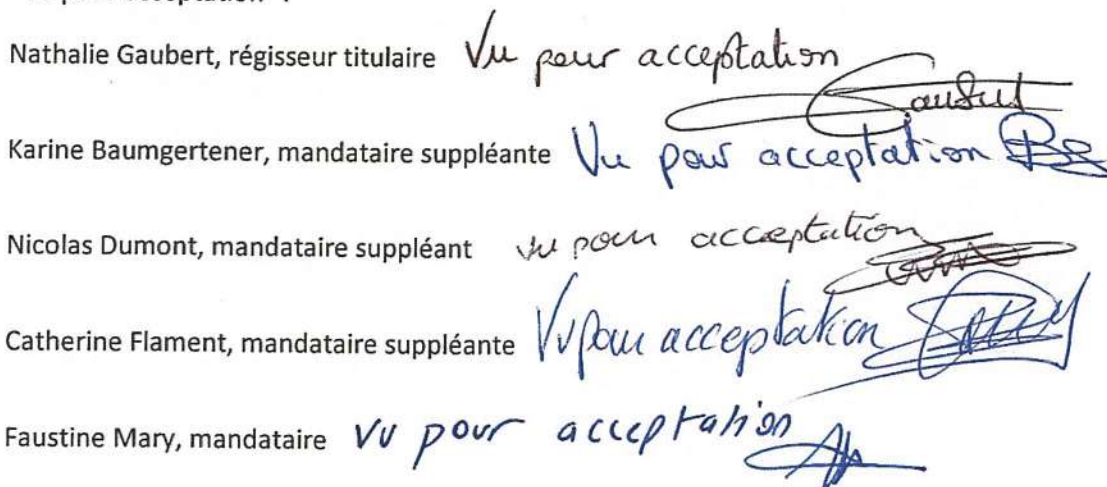 Nathalie Gaubert, régisseur titulaire Vu pour acceptation
Karine Baumgertener, mandataire suppléante Vu pour acceptation
Nicolas Dumont, mandataire suppléant vu pour acceptation
Catherine Flament, mandataire suppléante Vu pour acceptation
Faustine Mary, mandataire Vu pour acceptation